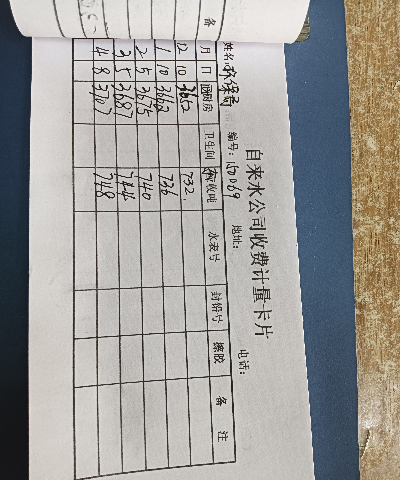 自来水公司收费计量卡片
编号: 150069 地址: 电话:
月 日 厨房 卫生间 应收吨 水表号 封铅号 擦胶 备注
12 10 3652 732
1 10 3663 736
2 5 3675 740
3 5 3687 744
4 8 3707 748
备